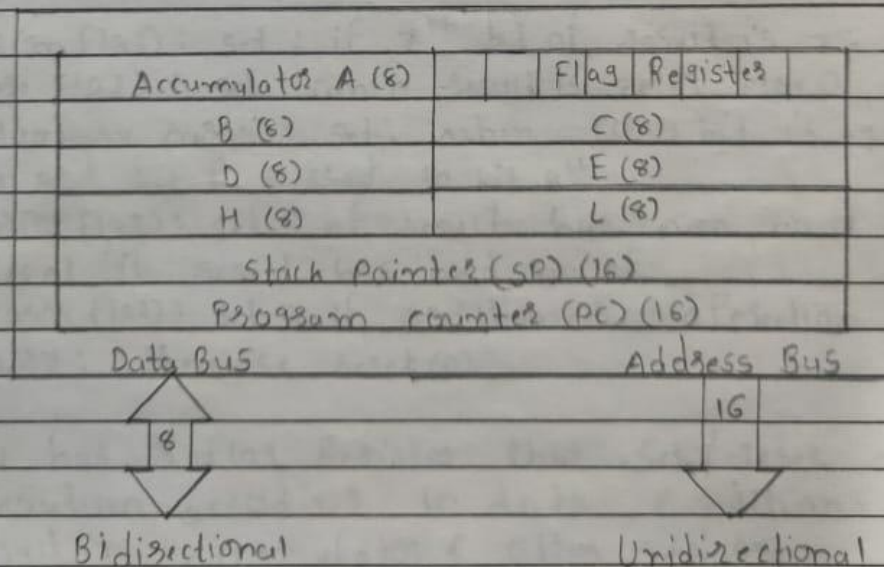 Accumulator A (8) Flag Register
B (8) C (8)
D (8) E (8)
H (8) L (8)
Stack Pointer (SP) (16)
Program counter (PC) (16)
Data Bus Address Bus
8 16
Bidirectional Unidirectional